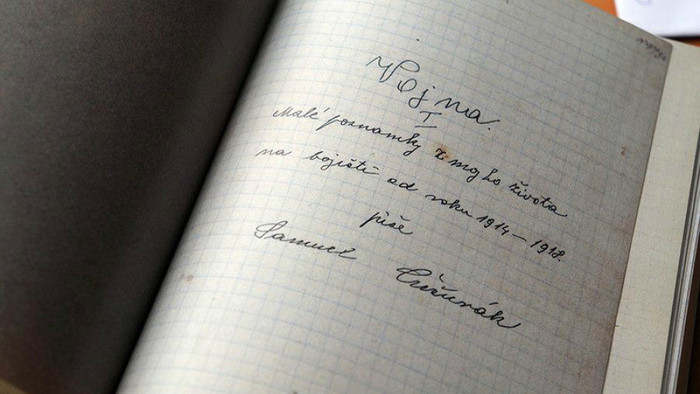 Vojna.
I
Malé poznamky z mojho života
na bojišti od roku 1914 – 1918.
píše
Samuel Čižurák